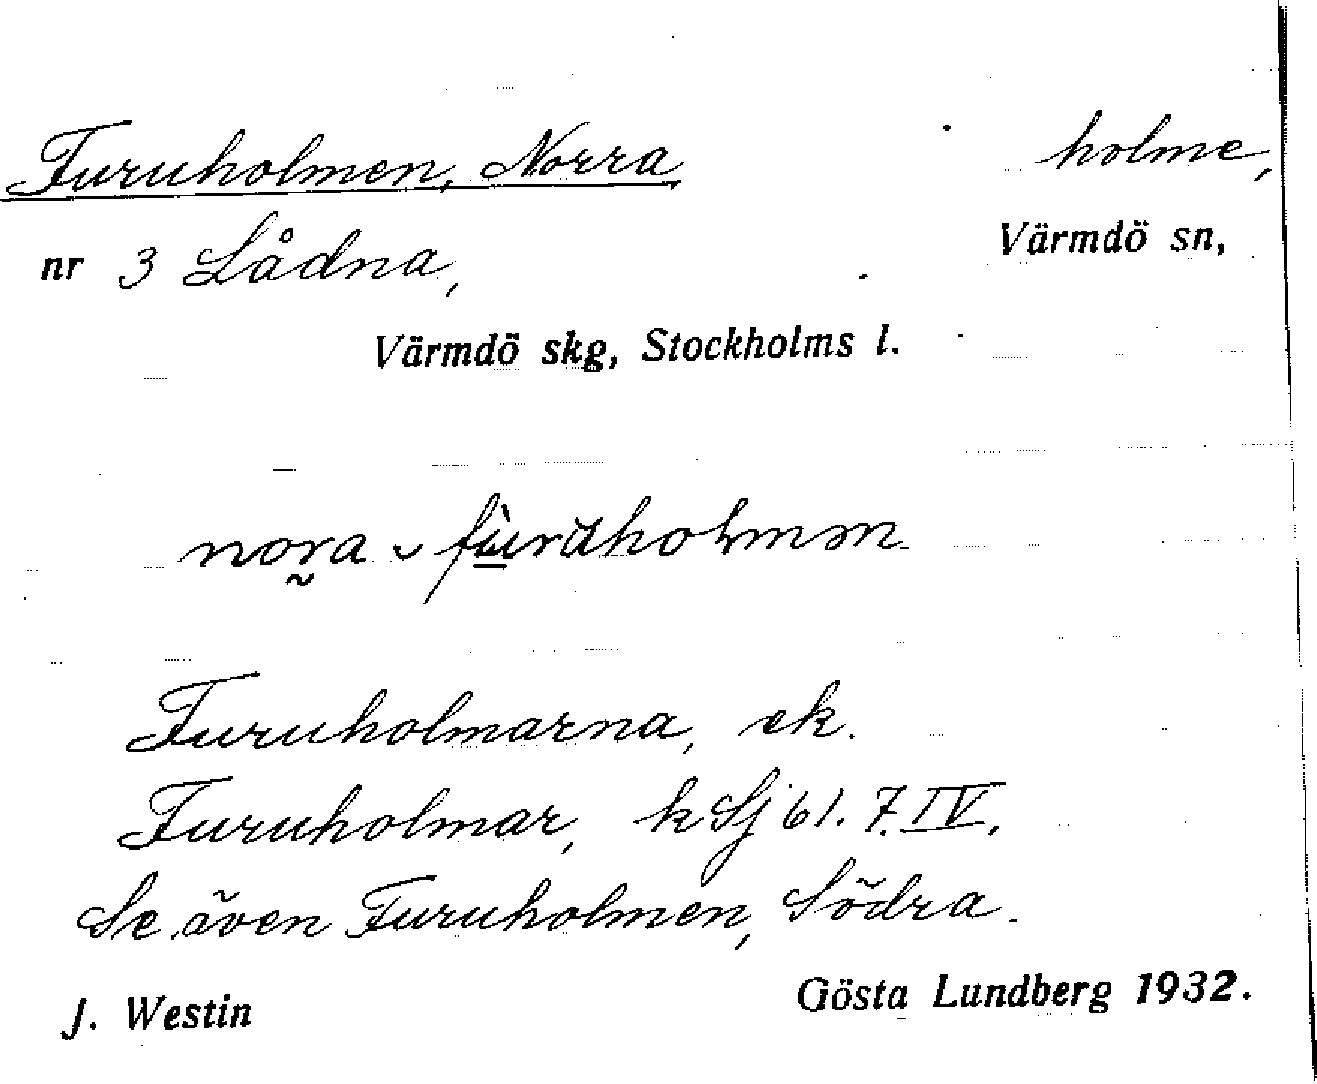 Furuholmen, Norra holme,
nr 3 Lådna, Värmdö sn,
Värmdö skg, Stockholms l.
nora ˬ fùruholmen
Furuholmarna, ek.
Furuholmar, k Sj bl. 7. IV.
Se även Furuholmen, Södra.
J. Westin Gösta Lundberg 1932.